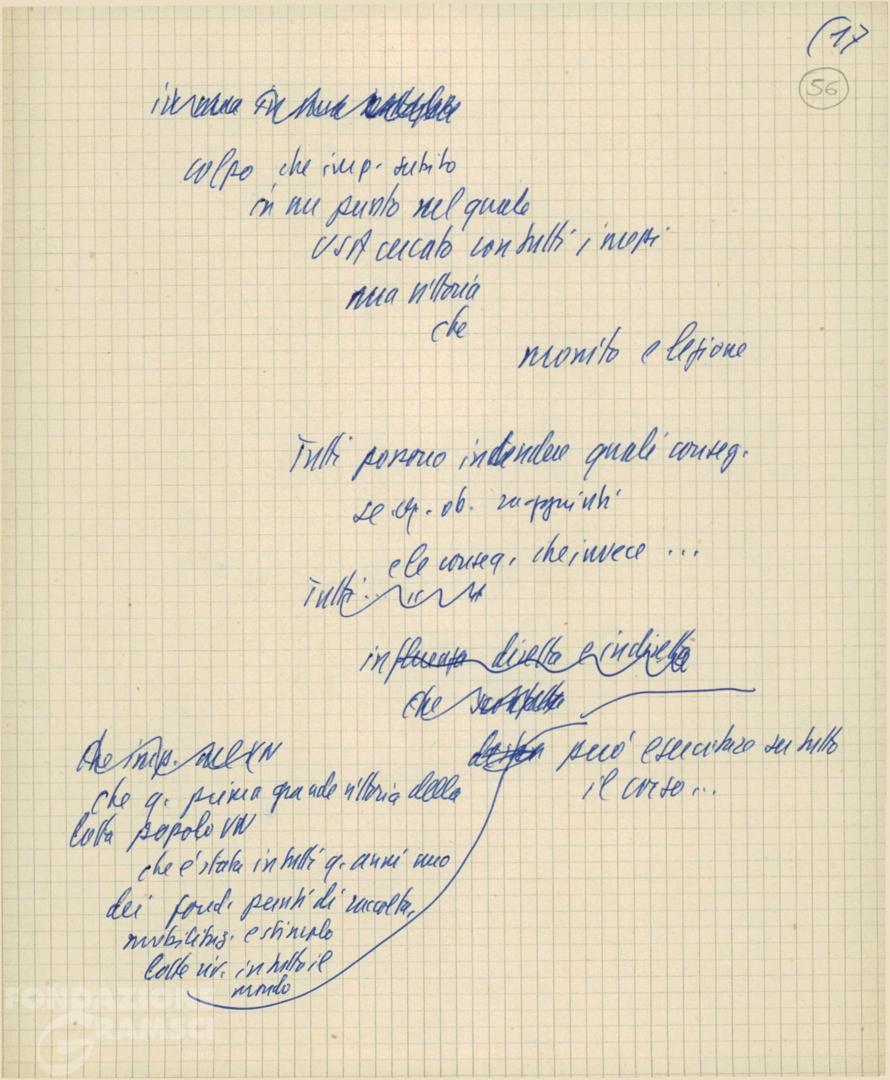 (17
56
colpo che imp. subito
in un punto nel quale
USA cercato con tutti i mezzi
una vittoria
che
monito e lezione
Tutti possono intendere quali conseg.
se q. ob. raggiunti
e le conseg. che invece ...
Tutti
influenza diretta e indiretta
che
può esercitare su tutto
il corso...
che imp. nel VN
che q. prima grande vittoria della
lotta popolo VN
che è stata in tutti q. anni uno
dei fond. punti di raccolta,
mobilitaz. e stimolo
lotte riv. in tutto il
mondo
FONDAZIONE
GRAMSCI